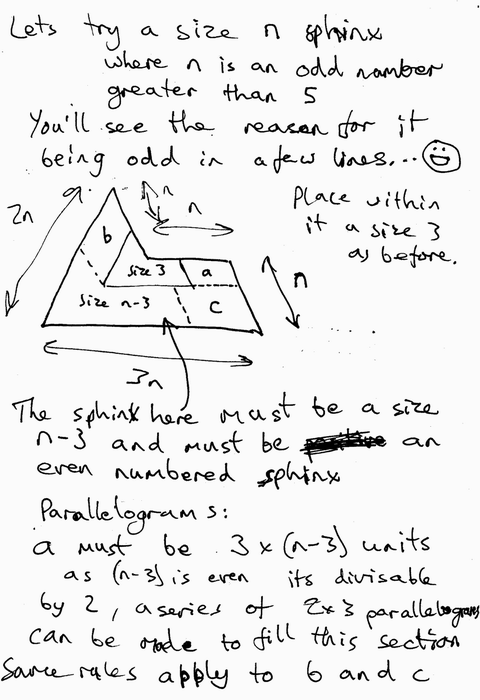 Lets try a size n sphinx
where n is an odd number
greater than 5
You'll see the reason for it
being odd in a few lines...
Place within
it a size 3
as before.
2n
n
n
b
size 3
a
n
size n-3
c
3n
The sphinx here must be a size
n-3 and must be an
even numbered sphinx
Parallelograms:
a must be 3 x (n-3) units
as (n-3) is even its divisable
by 2, a series of 2x3 parallelograms
can be made to fill this section
Same rules apply to b and c